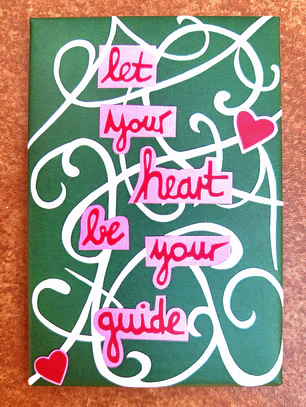 let
your
heart
be
your
guide